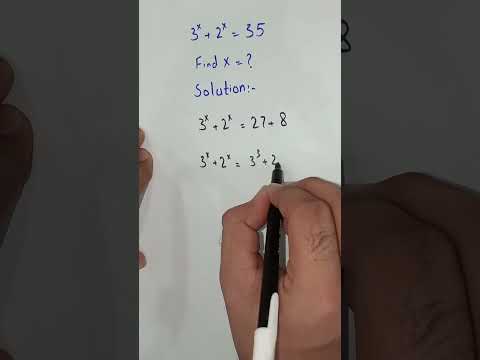 3ˣ + 2ˣ = 35
Find x = ?
Solution:-
3ˣ + 2ˣ = 27 + 8
3ˣ + 2ˣ = 3³ + 2